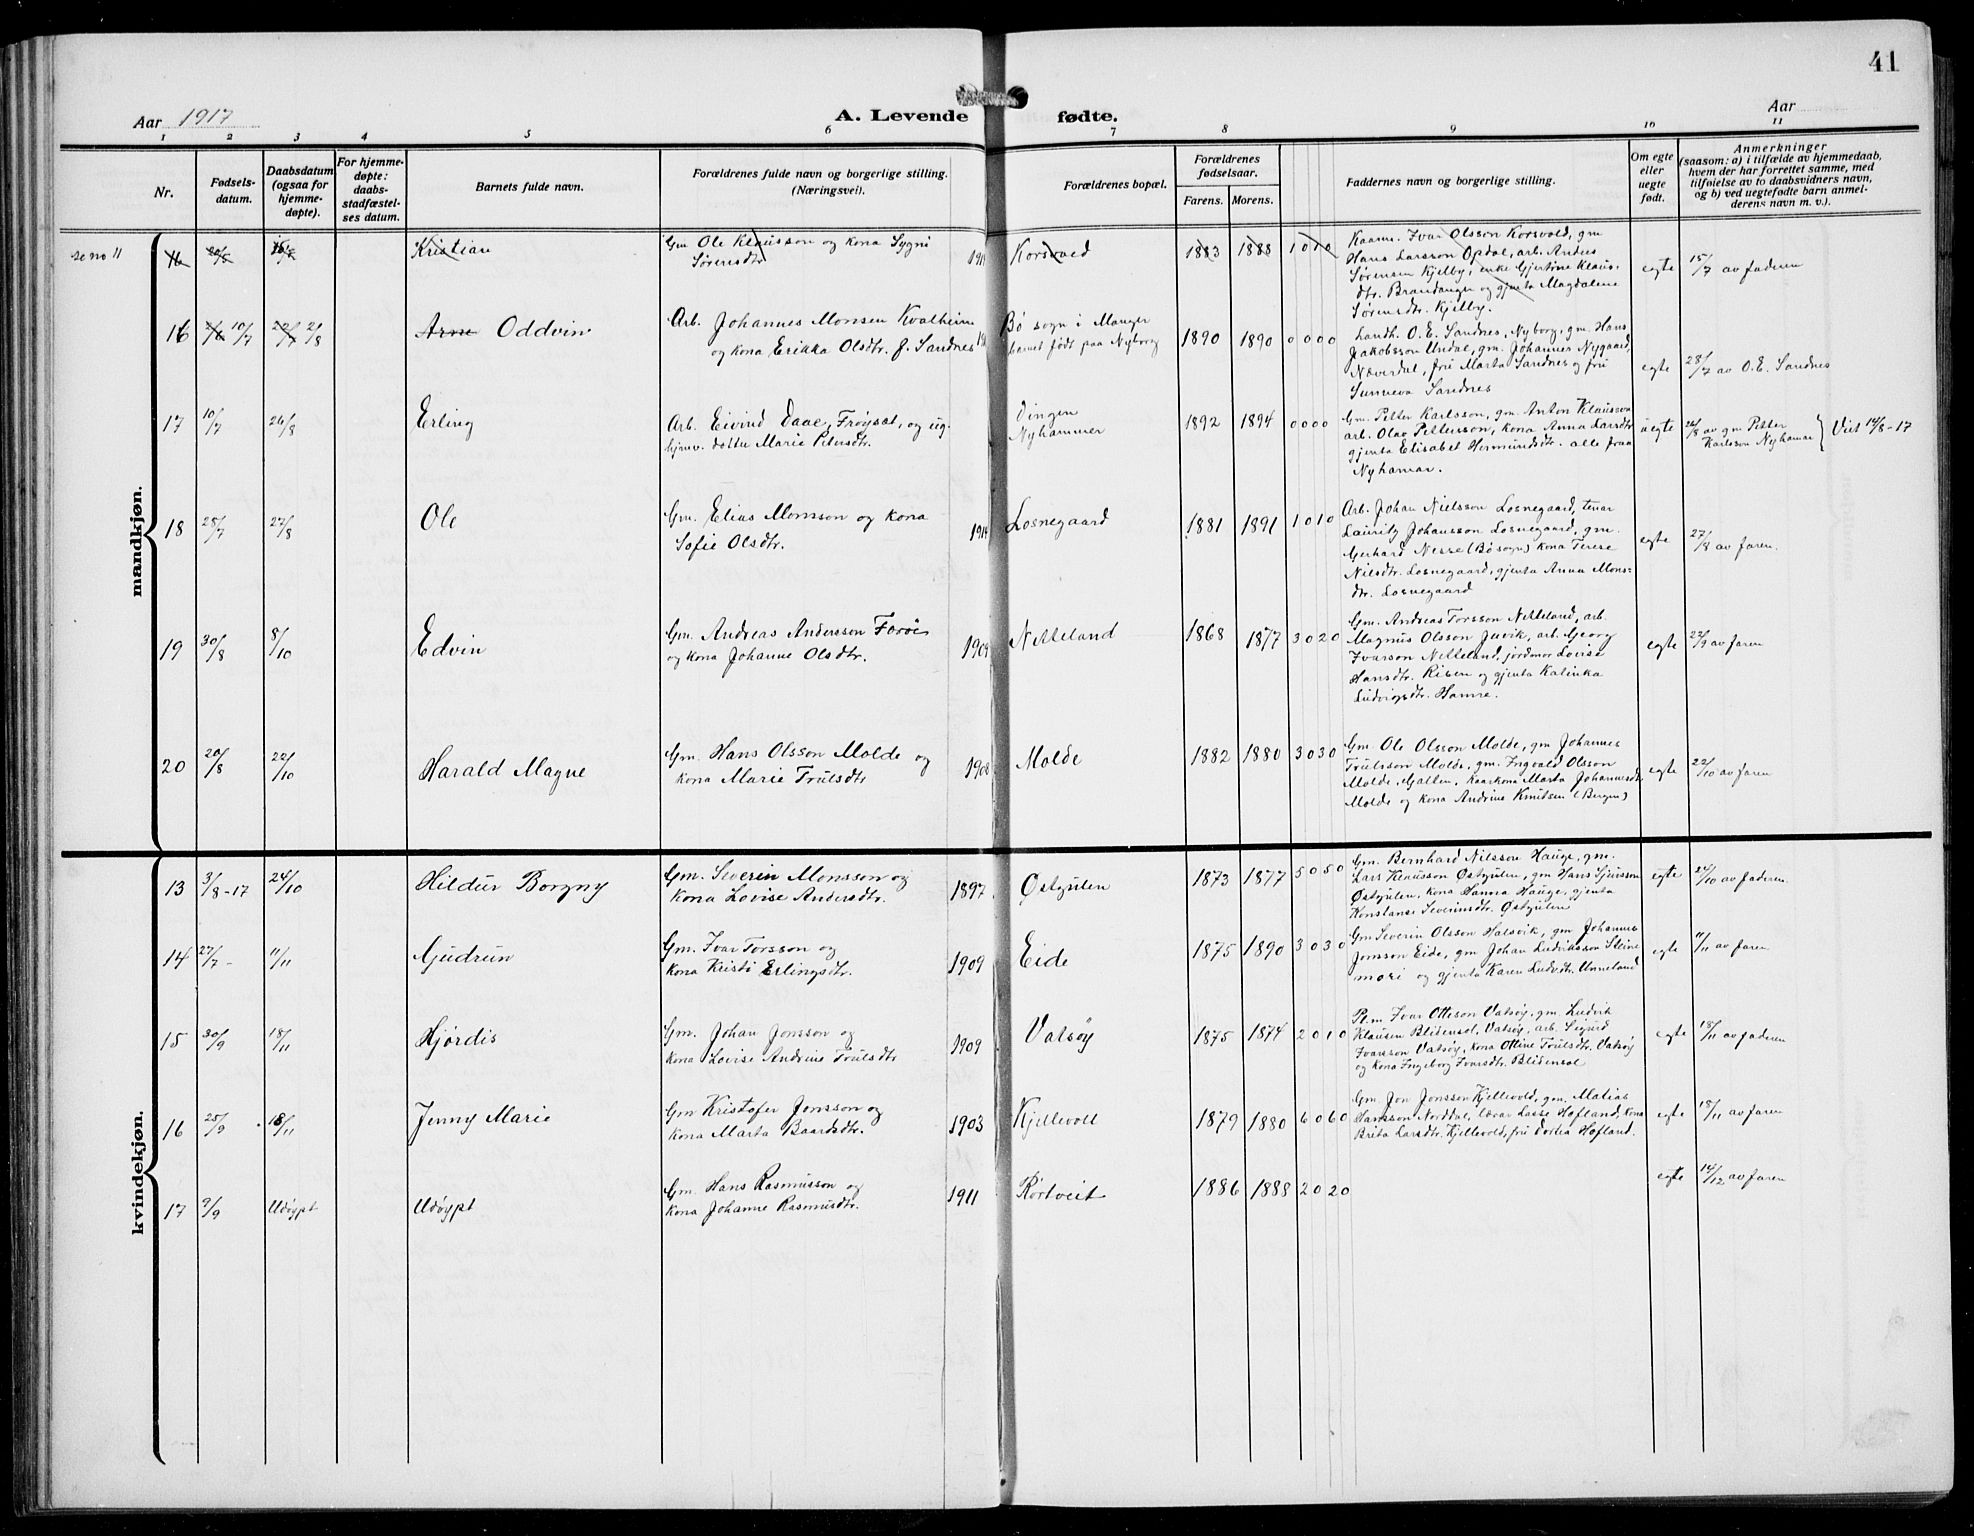 41
Aar 1917
A. Levende fødte.
Aar
1 2 3 4 5 6 7 8 9 10 11
Nr.
Fødsels-
datum.
Daabsdatum
(ogsaa for
hjemme-
døpte).
For hjemme-
døpte:
daabs-
stadfæstel-
ses datum.
Barnets fulde navn.
Forældrenes fulde navn og borgerlige stilling.
(Næringsvei).
Forældrenes bopæl.
Forældrenes
fødselsaar.
Farens. Morens.
Faddernes navn og borgerlige stilling.
Om egte
eller
uegte
født.
Anmerkninger
(saasom: a) i tilfælde av hjemmedaab,
hvem der har forrettet samme, med
tilføielse av to daabsvidners navn,
og b) ved uegtefødte barn anmel-
derens navn m. v.).
mandkjøn.
se no 11
16
Kristian
Gm. Ole Klausson og kona Sygni
Sørensdtr
Korsvold
1883 1888 1 0 1 0
Kaarm. Ivar Olsson Korsvold, gm.
Hans Larsson Opdal, arb. Anders
Sørensen Kjelby, enke Gjertine Klaus-
dtr. Brandanger og gjenta Magdalene
Sørensdtr. Kjelby.
egte
15/7 av faderen
16 10/7 21/8
Arne Oddvin
Arb. Johannes Monsen Kvalheim
og kona Erikka Olsdtr. f. Sandnes
Bø sogn i Manger
barnet født paa Nyborg
1890 1890 0 0 0 0
Landh. O. E. Sandnes, Nyborg, gm. Hans
Jakobsson Undal, gm. Johannes Nygaard,
Næverdal, fru Marta Sandnes og fru
Sunneva Sandnes
egte
28/7 av O. E. Sandnes
17 10/7 26/8
Erling
Arb. Eivind Daae, Frøyset, og ug.
hjmv. dotter Marie Petersdtr.
Vingen
Nyhammer
1892 1894 0 0 0 0
Gm. Petter Karlsson, gm. Anton Klausson
arb. Olav Pettersson, kona Anna Larsdtr
gjenta Elisabet Hermundsdtr. alle fraa
Nyhamar.
uegte
26/8 av gm Petter
Karlsson Nyhamar } Vist 14/8-17
18 28/7 27/8
Ole
Gm. Elias Monsson og kona
Sofie Olsdtr.
1914
Losnegaard
1881 1891 1 0 1 0
Arb. Johan Nielsson Losnegaard, tenar
Lauritz Johansson Losnegaard, gm.
Gerhard Nesse (Bø sogn) kona Terese
Nilsdtr. Losnegaard, gjenta Anna Mons-
dtr. Losnegaard
egte
27/8 av faren.
19 30/8 8/10
Edvin
Gm. Andreas Andersson Forøi
og kona Johanne Olsdtr.
1909
Nitteland
1868 1877 3 0 2 0
Gm. Andreas Torsson Nitteland, arb.
Magnus Olsson Juvik, arb. Georg
Ivarson Nitteland, jordmor Lovise
Hansdtr. Risen og gjenta Katinka
Ludvigsdtr. Hamre.
egte
22/9 av faren
20 20/8 22/10
Harald Magne
Gm. Hans Olsson Molde og
kona Marie Trulsdtr
1908
Molde
1882 1880 3 0 3 0
Gm. Ole Olsson Molde, gm Johannes
Trulsson Molde, gm. Ingvald Olsson
Molde, kaarkona Marta Johannesdtr.
Molde og kona Andrine Knutsen (Bergen)
egte
22/10 av faren
kvindekjøn.
13 3/8-17 24/10
Hildur Borgny
Gm. Severin Monsson og
kona Lovise Andersdtr.
1897
Østgulen
1873 1877 5 0 5 0
Gm. Bernhard Nilsson Hauge, gm.
Lars Klausson Østgulen, gm Hans Sjursson
Østgulen, kona Hanna Hauge, gjenta
Konstanse Severinsdtr. Østgulen
egte
24/10 av faderen
14 27/7 - 11/11
Gudrun
Gm. Ivar Torsson og
kona Kristi Erlingsdtr.
1909
Eide
1875 1890 3 0 3 0
Gm Severin Olsson Halsvik, gm Johannes
Jonsson Eide, gm Johan Ludviksson Steine
mori og gjenta Karen Ludvdtr. Unneland
egte
11/11 av faren
15 30/9 18/11
Hjørdis
Gm. Johan Jonsson og
kona Lovise Andrine Trulsdtr
1909
Vatsøy
1875 1874 2 0 1 0
Pl.m Ivar Otteson Vatsøy, gm Ludvik
Klausen Blidensol, Vatsøy, arb. Sigurd
Ivarsson Vatsøy, kona Ottine Trulsdtr. Vatsøy
og kona Ingeborg Ivarsdtr. Blidensol
egte
18/11 av faderen
16 25/9 18/11
Jenny Marie
Gm Kristofer Jonsson og
kona Marta Baardsdtr.
1903
Kjellevolt
1879 1880 6 0 6 0
Gm. Jon Jonsson Kjellevold, gm. Matias
Hansson Norddal, lærar Lasse Hofland, kona
Brita Larsdtr. Kjellevold, fru Dortea Hofland.
egte
18/11 av faren
17 9/9 Udøypt
Udøypt
Gm. Hans Rasmusson og
kona Johanne Rasmusdtr.
1911
Rørtveit
1886 1888 2 0 2 0
egte
14/12 av faren